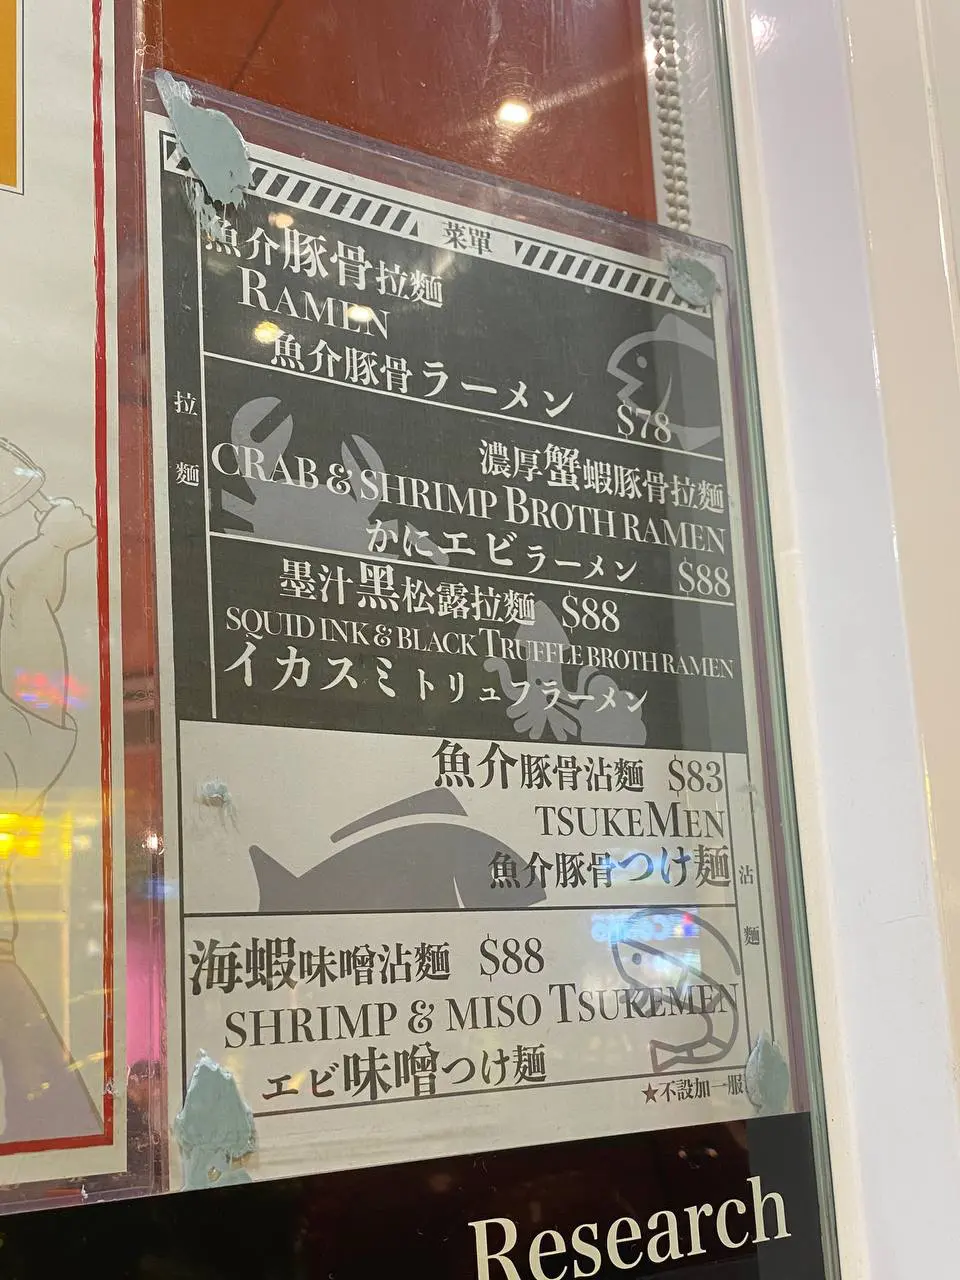 菜單
拉麵
魚介豚骨拉麵
RAMEN
魚介豚骨ラーメン $78
濃厚蟹蝦豚骨拉麵
CRAB & SHRIMP BROTH RAMEN
かにエビラーメン $88
墨汁黑松露拉麵 $88
SQUID INK & BLACK TRUFFLE BROTH RAMEN
イカスミトリュフラーメン
沾麵
魚介豚骨沾麵 $83
TSUKEMEN
魚介豚骨つけ麺
海蝦味噌沾麵 $88
SHRIMP & MISO TSUKEMEN
エビ味噌つけ麺
★不設加一服
Research